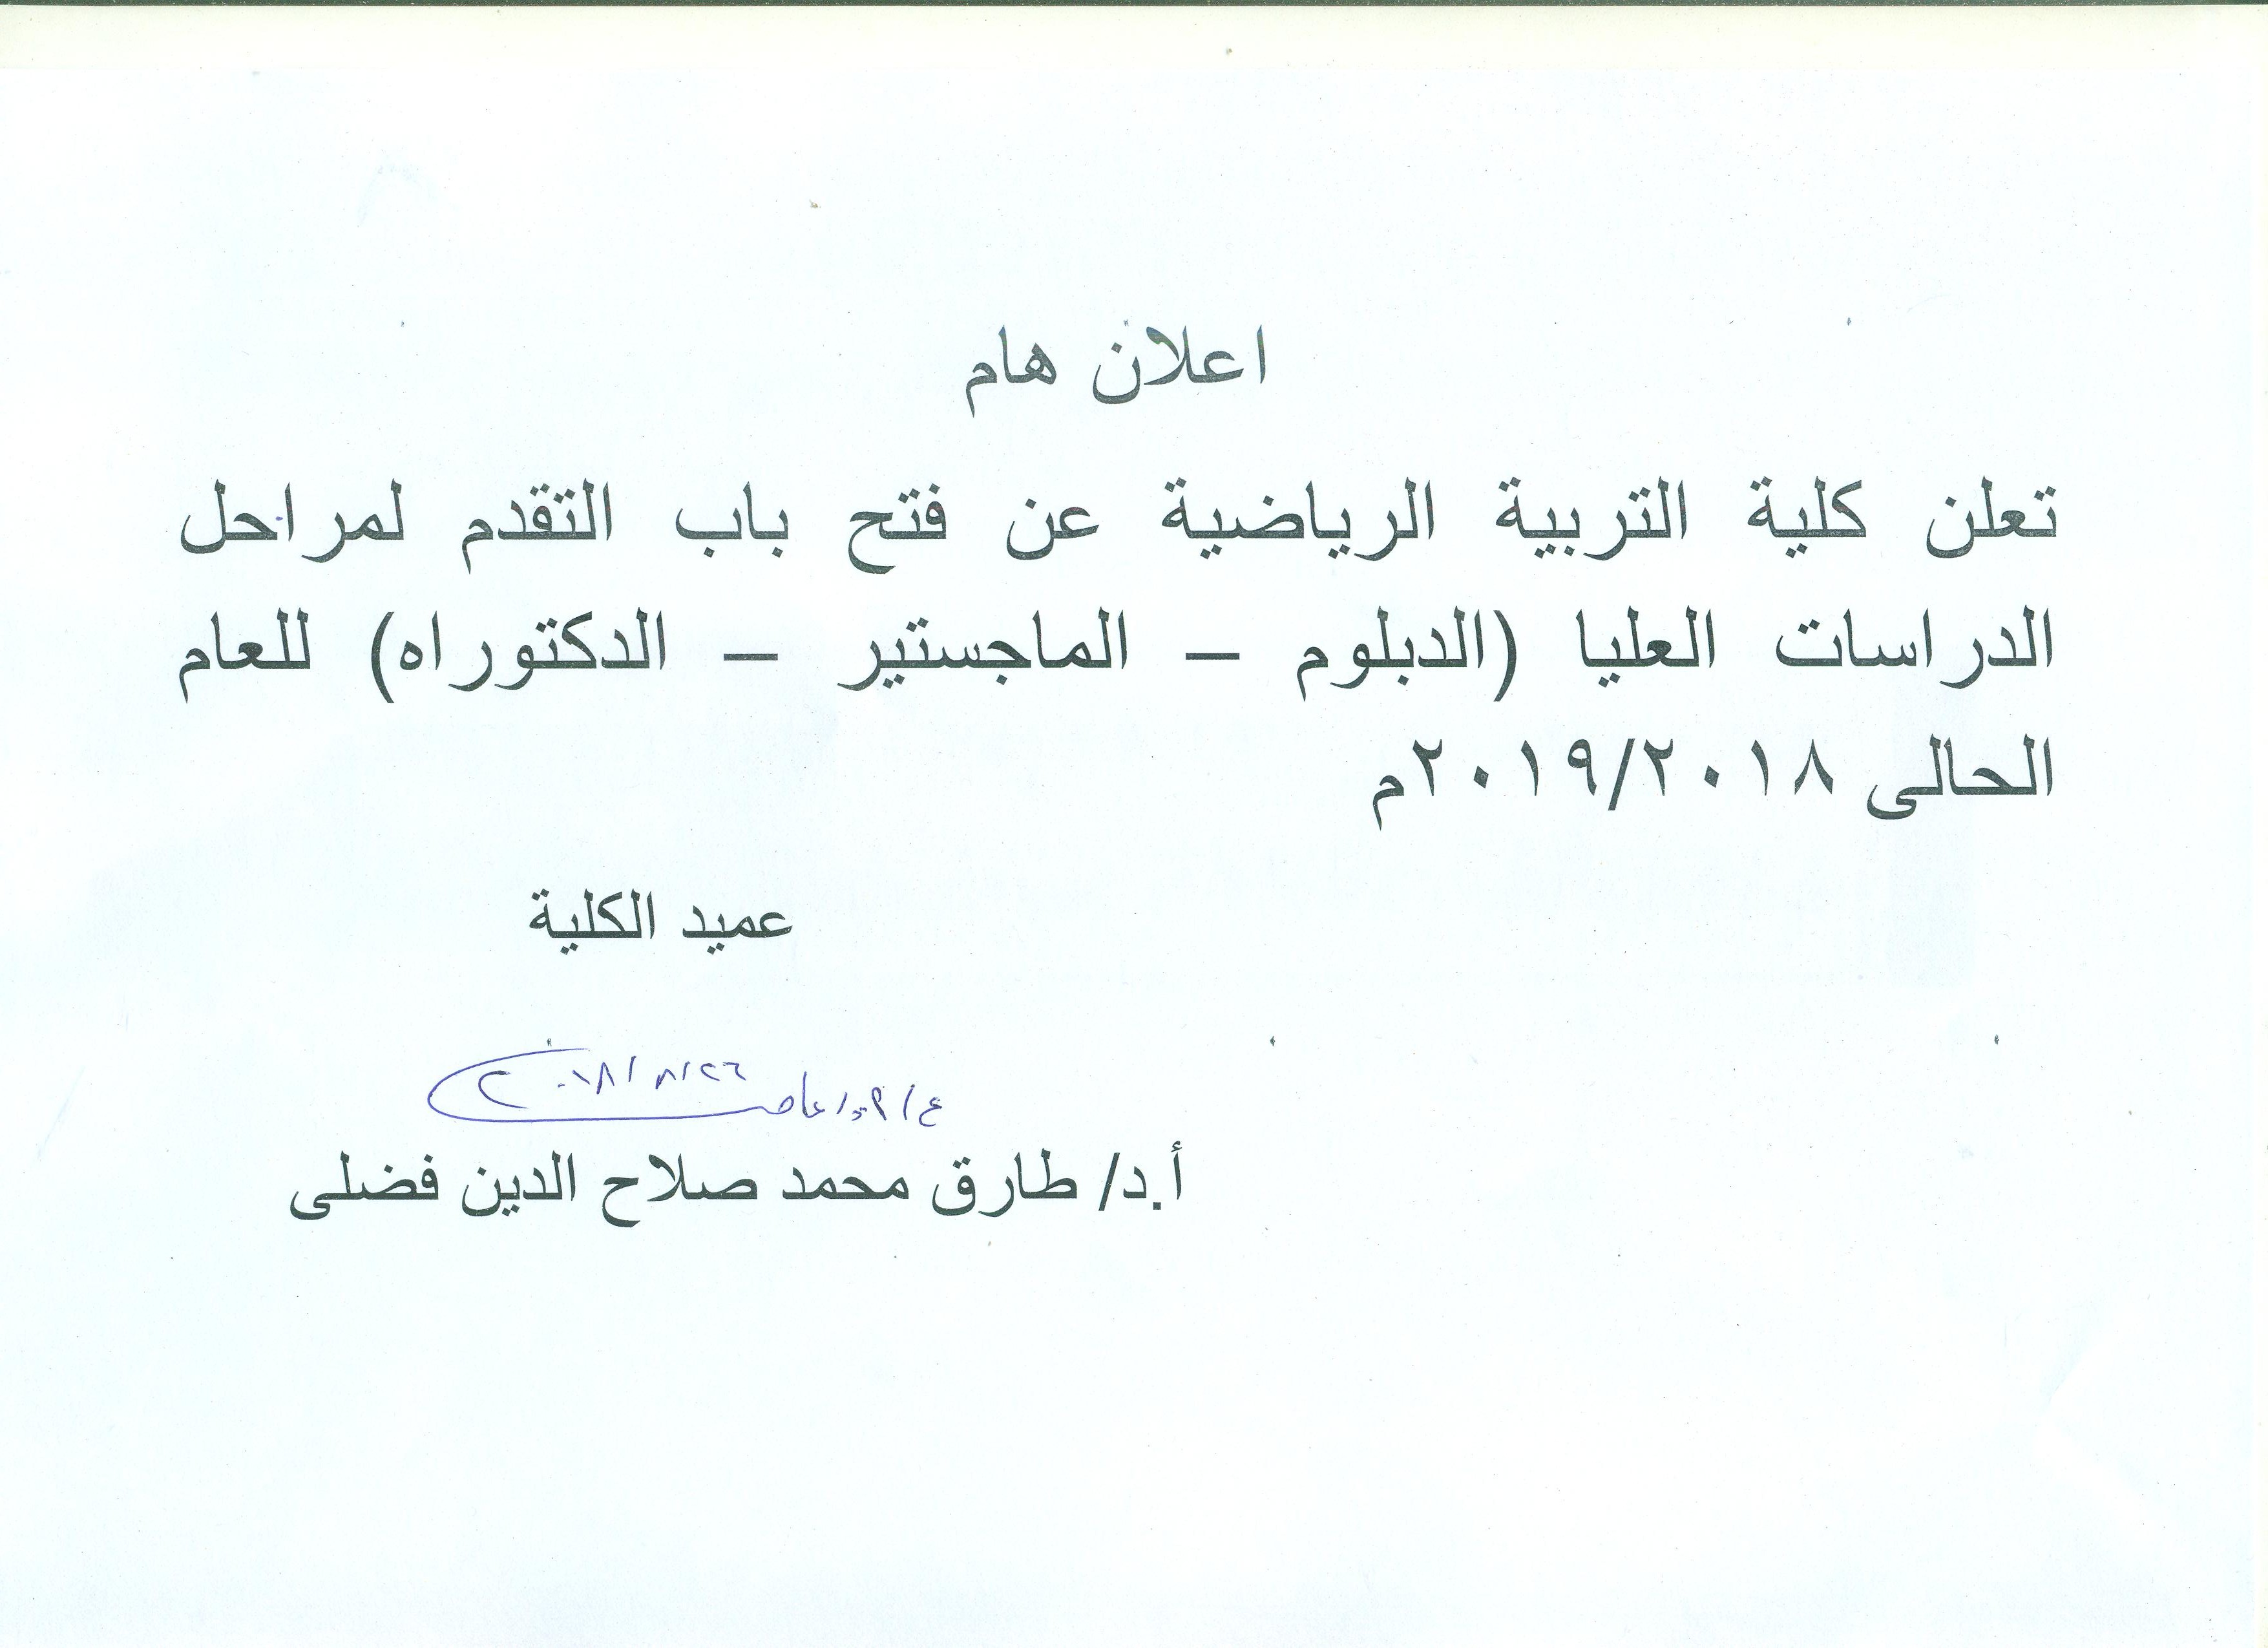 اعلان هام
تعلن كلية التربية الرياضية عن فتح باب التقدم لمراحل
الدراسات العليا (الدبلوم – الماجستير – الدكتوراه) للعام
الحالى ٢٠١٩/٢٠١٨م
عميد الكلية
٢٠١٨/٨/٢٦
أ.د/ طارق محمد صلاح الدين فضلى